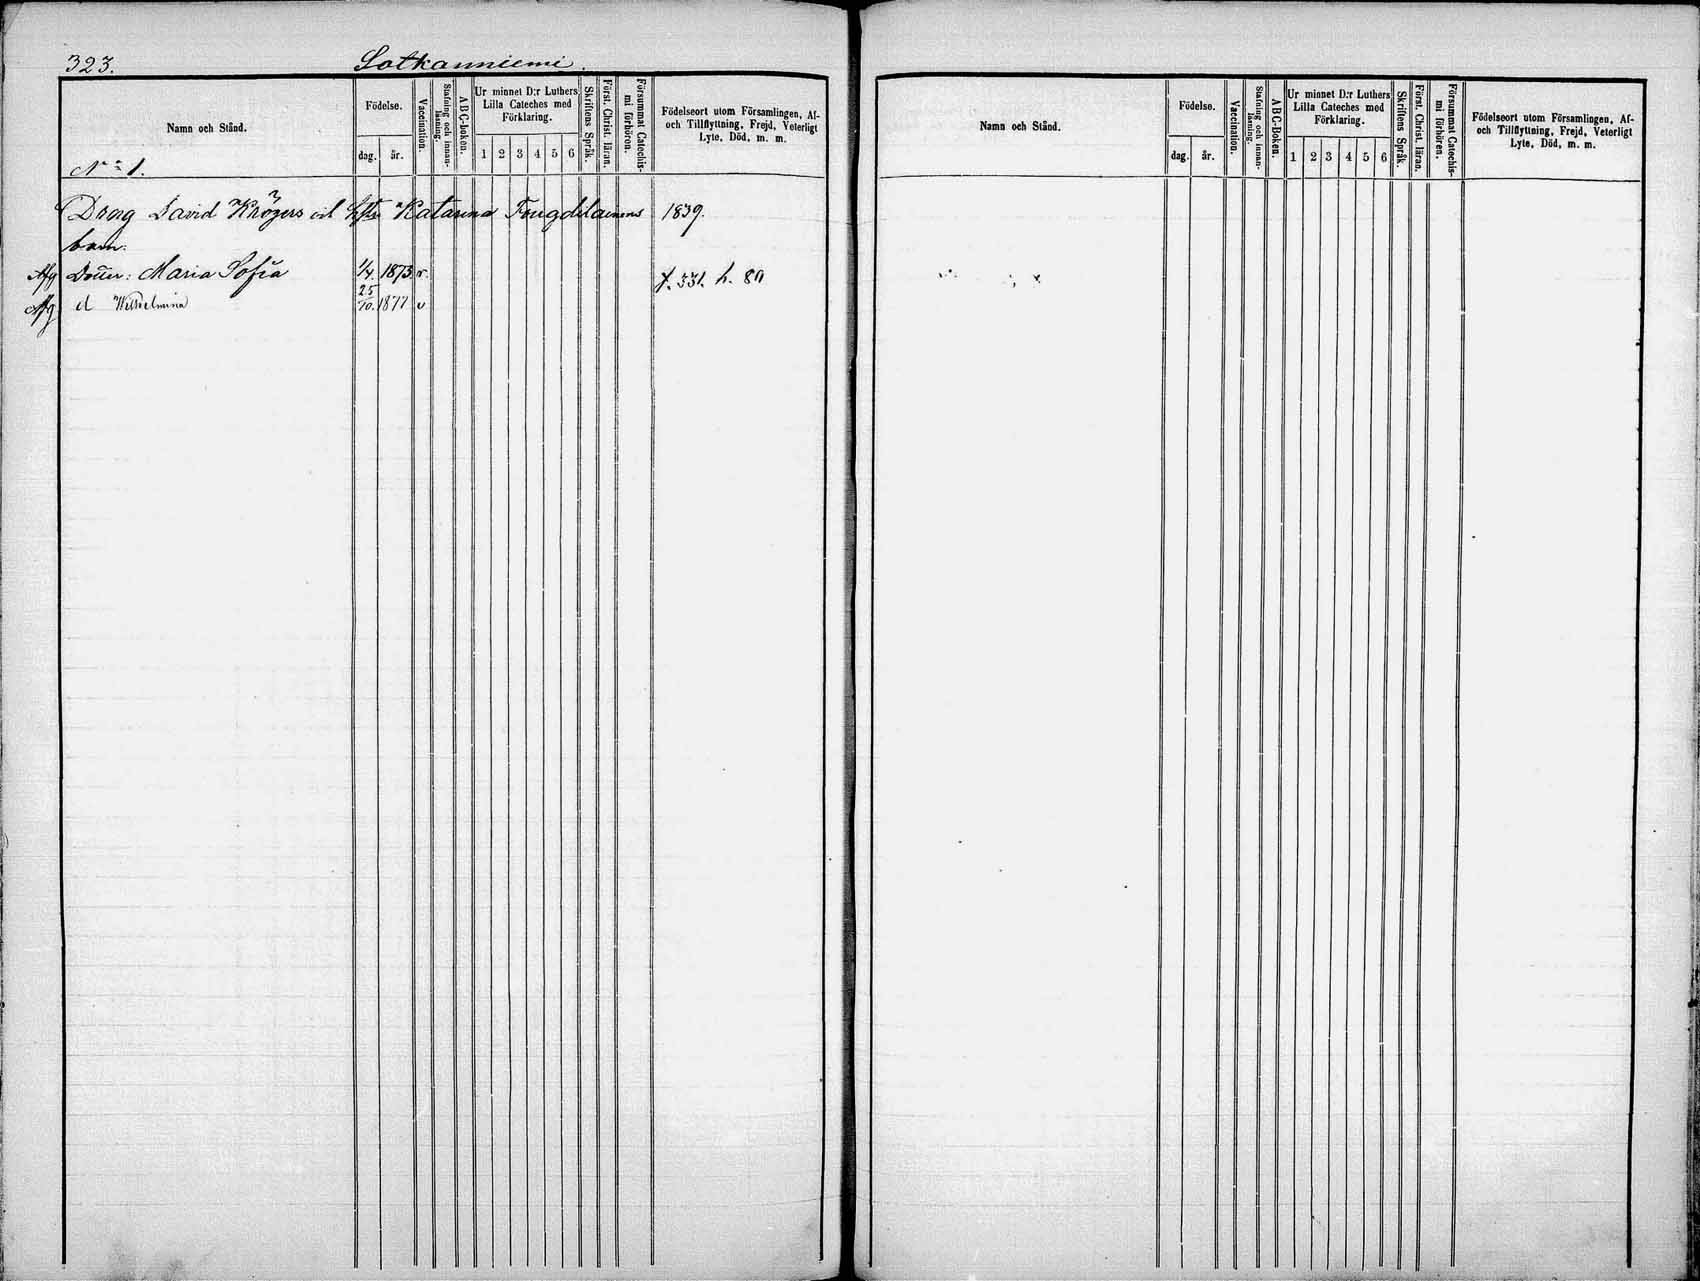 323. Sotkanniemi.
Namn och Stånd.
Födelse.
dag. år.
Vaccination.
Stafning och innanläsning.
A B C-boken.
Ur minnet D:r Luthers
Lilla Cateches med
Förklaring.
1 2 3 4 5 6
Skriftens Språk.
Först. Christ. läran.
Försummat Catechis-
mi förhören.
Födelseort utom Församlingen, Af-
och Tillflyttning, Frejd, Veterligt
Lyte, Död, m. m.
N:o 1.
Dräng David Krögers och Katarina 1839.
barn:
Afg Dotter: Maria Sofia 1/4. 1873 v. f. 331. h. 80
Afg d Wilhelmina 25/10. 1877 v
Namn och Stånd.
Födelse.
dag. år.
Vaccination.
Stafning och innan-
läsning.
A B C-Boken.
Ur minnet D:r Luthers
Lilla Cateches med
Förklaring.
1 2 3 4 5 6
Skriftens Språk.
Först. Christ. läran.
Försummat Catechis-
mi förhören.
Födelseort utom Församlingen, Af-
och Tillflyttning, Frejd, Veterligt
Lyte, Död, m. m.